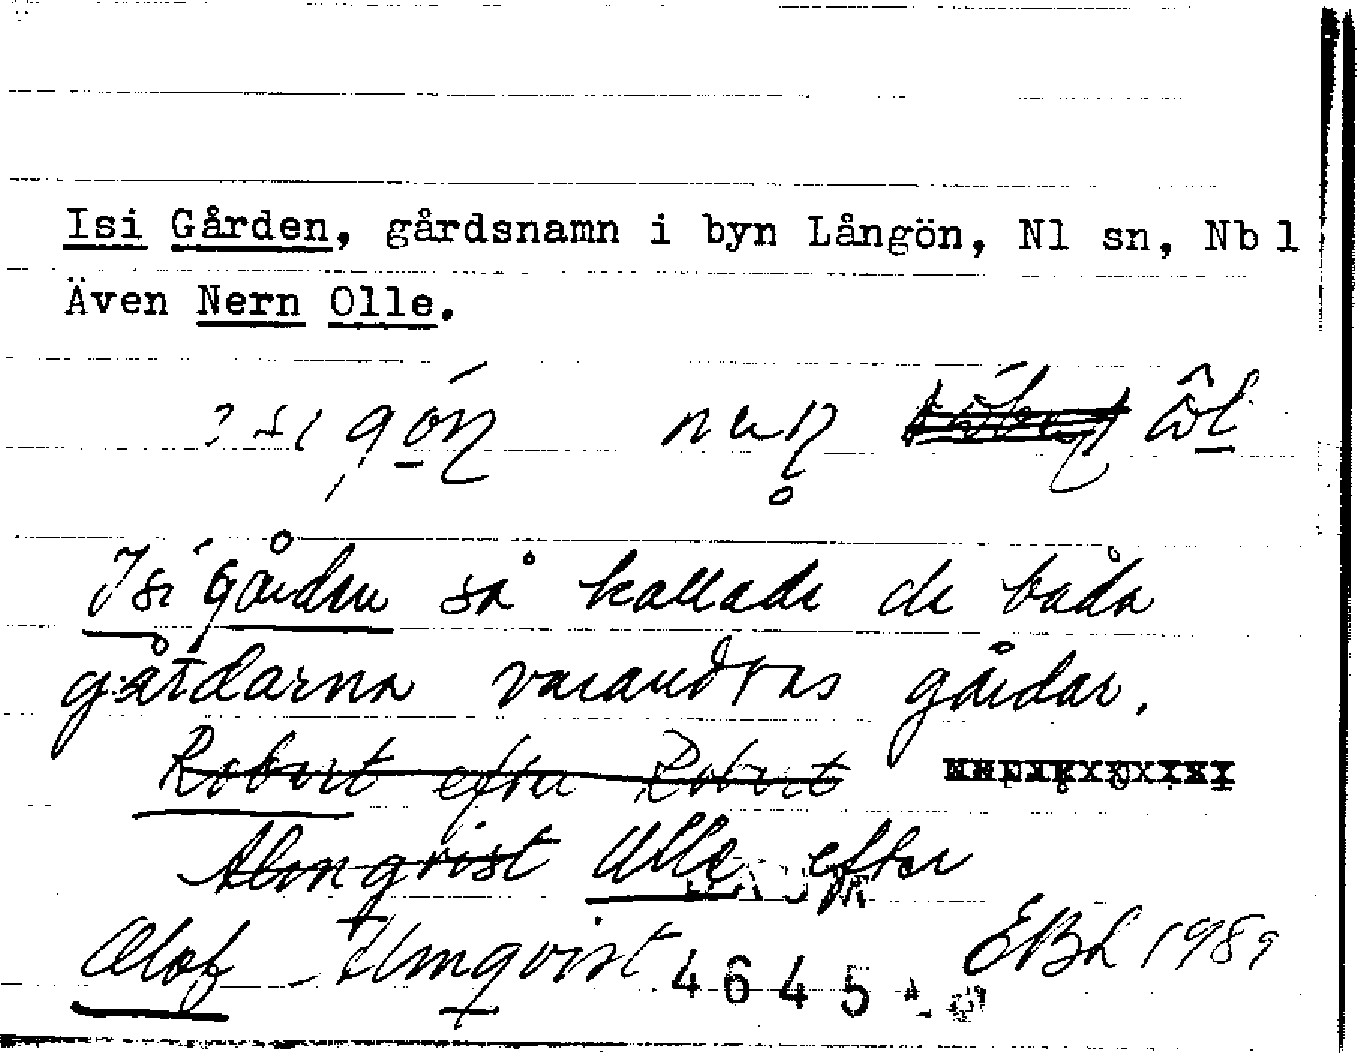 Isi Gården, gårdsnamn i byn Långön, Nl sn, Nb l
Även Nern Olle.
Isi gården så kallade de båda
gårdarna varandras gårdar.
Robert efter Robert
Almqvist Olle efter
Olof Almqvist
4645
EBL 1989